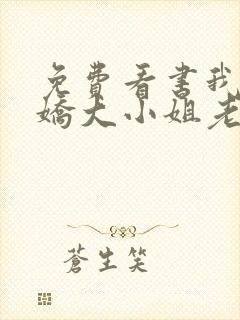 免費看書我
嬌大小姐老
蒼生笑